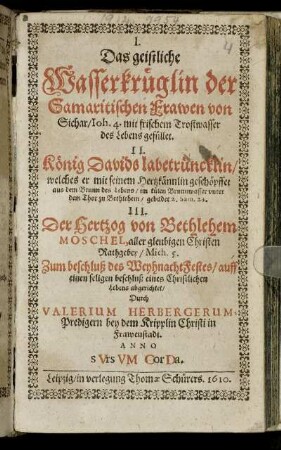 I.
Das geistliche
Wasserkrüglin der
Samaritischen Frawen von
Sichar/Ioh. 4. mit frischem Trostwasser
des Lebens gefüllet.
II.
König Davids labetrüncklin/
welches er mit seinem Hertzkännlin geschöpffet
aus dem Brunn des Lebens/ im külen Brunnwasser unter
dem Thor zu Bethlehem/ gebadet 2. Sam. 23.
III.
Der Hertzog von Bethlehem
MOSCHEL, aller gleubigen Christen
Rathgeber/ Mich. 5.
Zum beschluß des Weyhnacht Festes/ auff
einen seligen beschluß eines Christlichen
Lebens abgerichtet/
Durch
VALERIUM HERBERGERUM.
Predigern bey dem Kripplin Christi in
Frawenstadt.
ANNO
sVrsVM CorDa.
Leipzig/ in verlegung Thomæ Schürers. 1610.